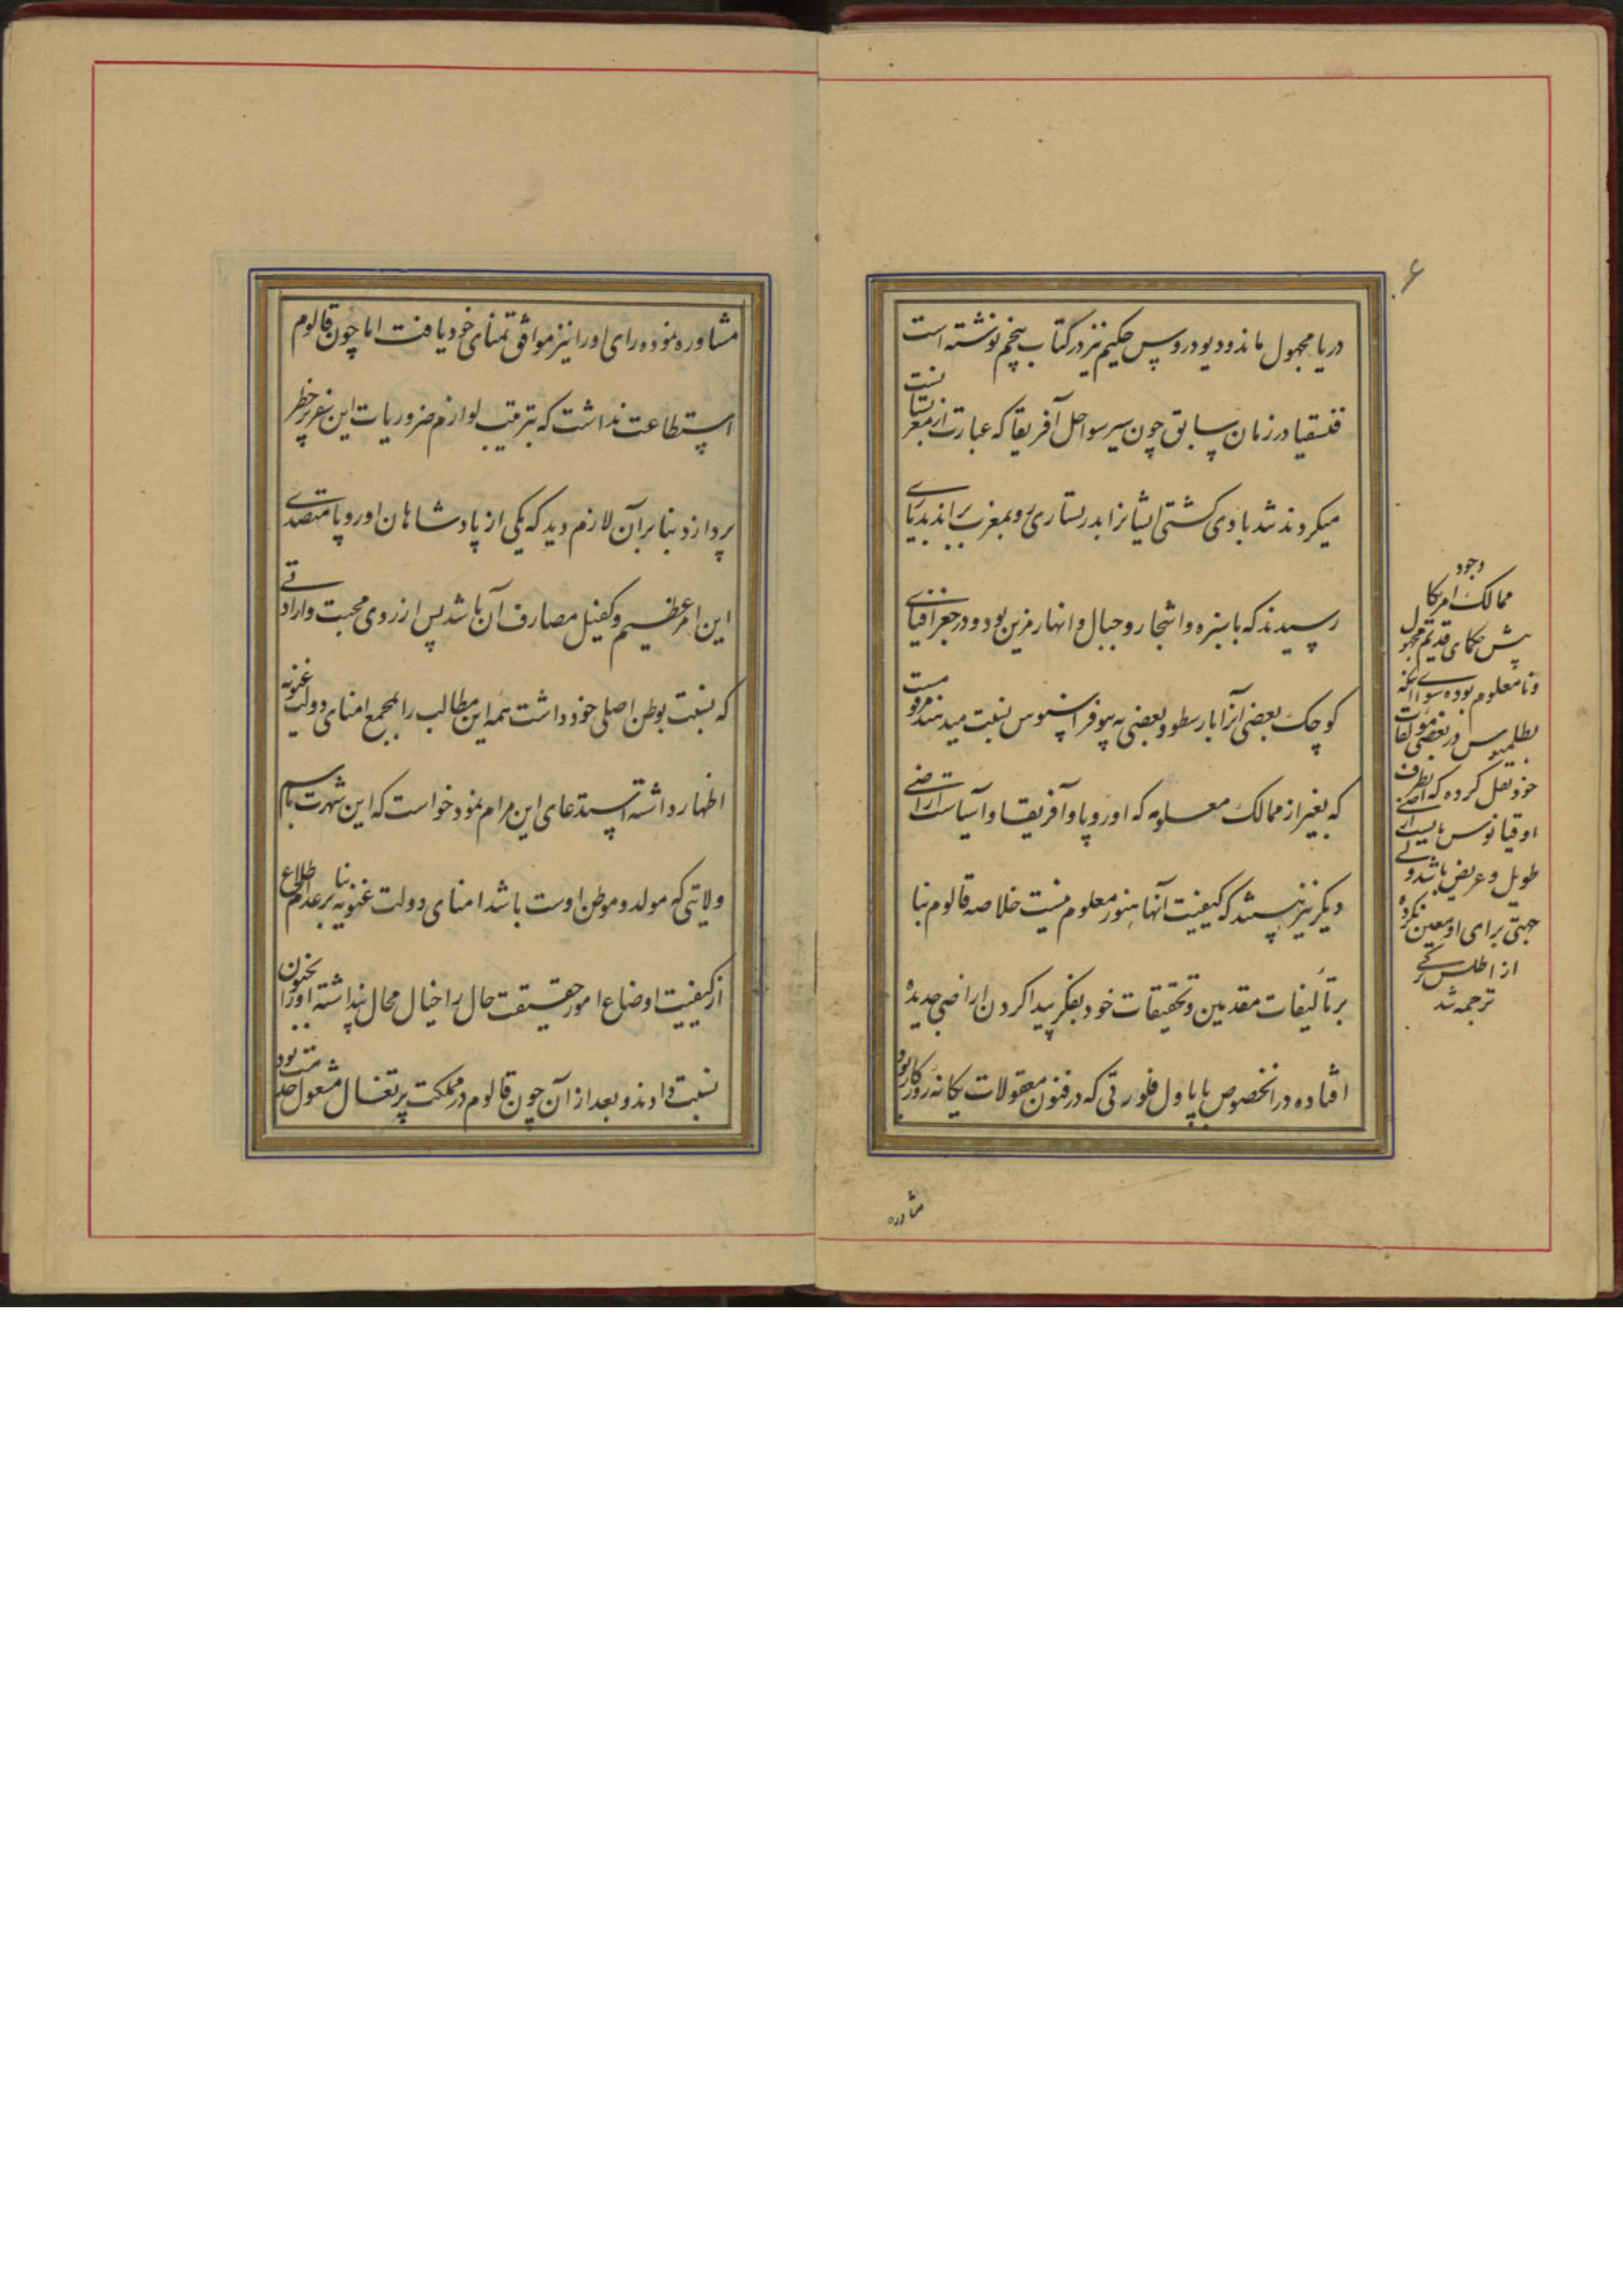 ۶
دریا مجهول ماند و دیودروس حکیم نیز در کتاب پنجم نوشته است
فنسقیا در زمان سابق چون سیر سواحل آفریقا که عبارت از مغربست
میکردند شد بادی کشتی ایشانرا بدریتاری رو بمغرب براند بدریای
رسیدند که با سبزه و اشجار و جبال و انهار مزین بود و در جغرافیای
کوچک بعضی آنرا بارسطو و بعضی به پیوفراسنوس نسبت میدهند مرویست
که بغیر از ممالک معلومه که اوروپا و آفریقا و آسیاست اراضی
دیگر نیز هستند که کیفیت آنها هنوز معلوم نیست خلاصه قالوم بنا
بر تألیفات مقدمین و تحقیقات خود بفکر پیدا کردن اراضی جدیده
افتاده در انخصوص با پاول فلورتی که در فنون معقولات یکانهٔ روزگار بود
وجود
ممالک امریکا
پیش حکمای قدیم مجهول
و نامعلوم بوده سوای آنکه
بطلمیوس در بعضی مؤلفات
خود نقل کرده که بطرف
اوقیانوس باید اراضی
طویل و عریض باشد ولی
جهتی برای او معین نکرده
از اطلس ترکی
ترجمه شد
مشاوره
مشاوره نموده رای او را نیز موافق تمنای خود یافت اما چون قالوم
استطاعت نداشت که بترتیب لوازم ضروریات این سفر پر خطر
پردازد بنا بر آن لازم دید که یکی از پادشاهان اوروپا متصدی
این امر عظیم و کفیل مصارف آن باشد پس از روی محبت و ارادتی
که نسبت بوطن اصلی خود داشت همه این مطالب را بمجمع امنای دولت غنویه
اظهار داشته استدعای این مرام نمود خواست که این شهرت باسم
ولایتی که مولد و موطن اوست باشد امنای دولت غنویه بنا بر عدم اطلاع
از کیفیت اوضاع امور حقیقت حال را خیال محال پنداشته او را بجنون
نسبت دادند و بعد از آن چون قالوم در مملکت پرتغال مشغول خدمت بود